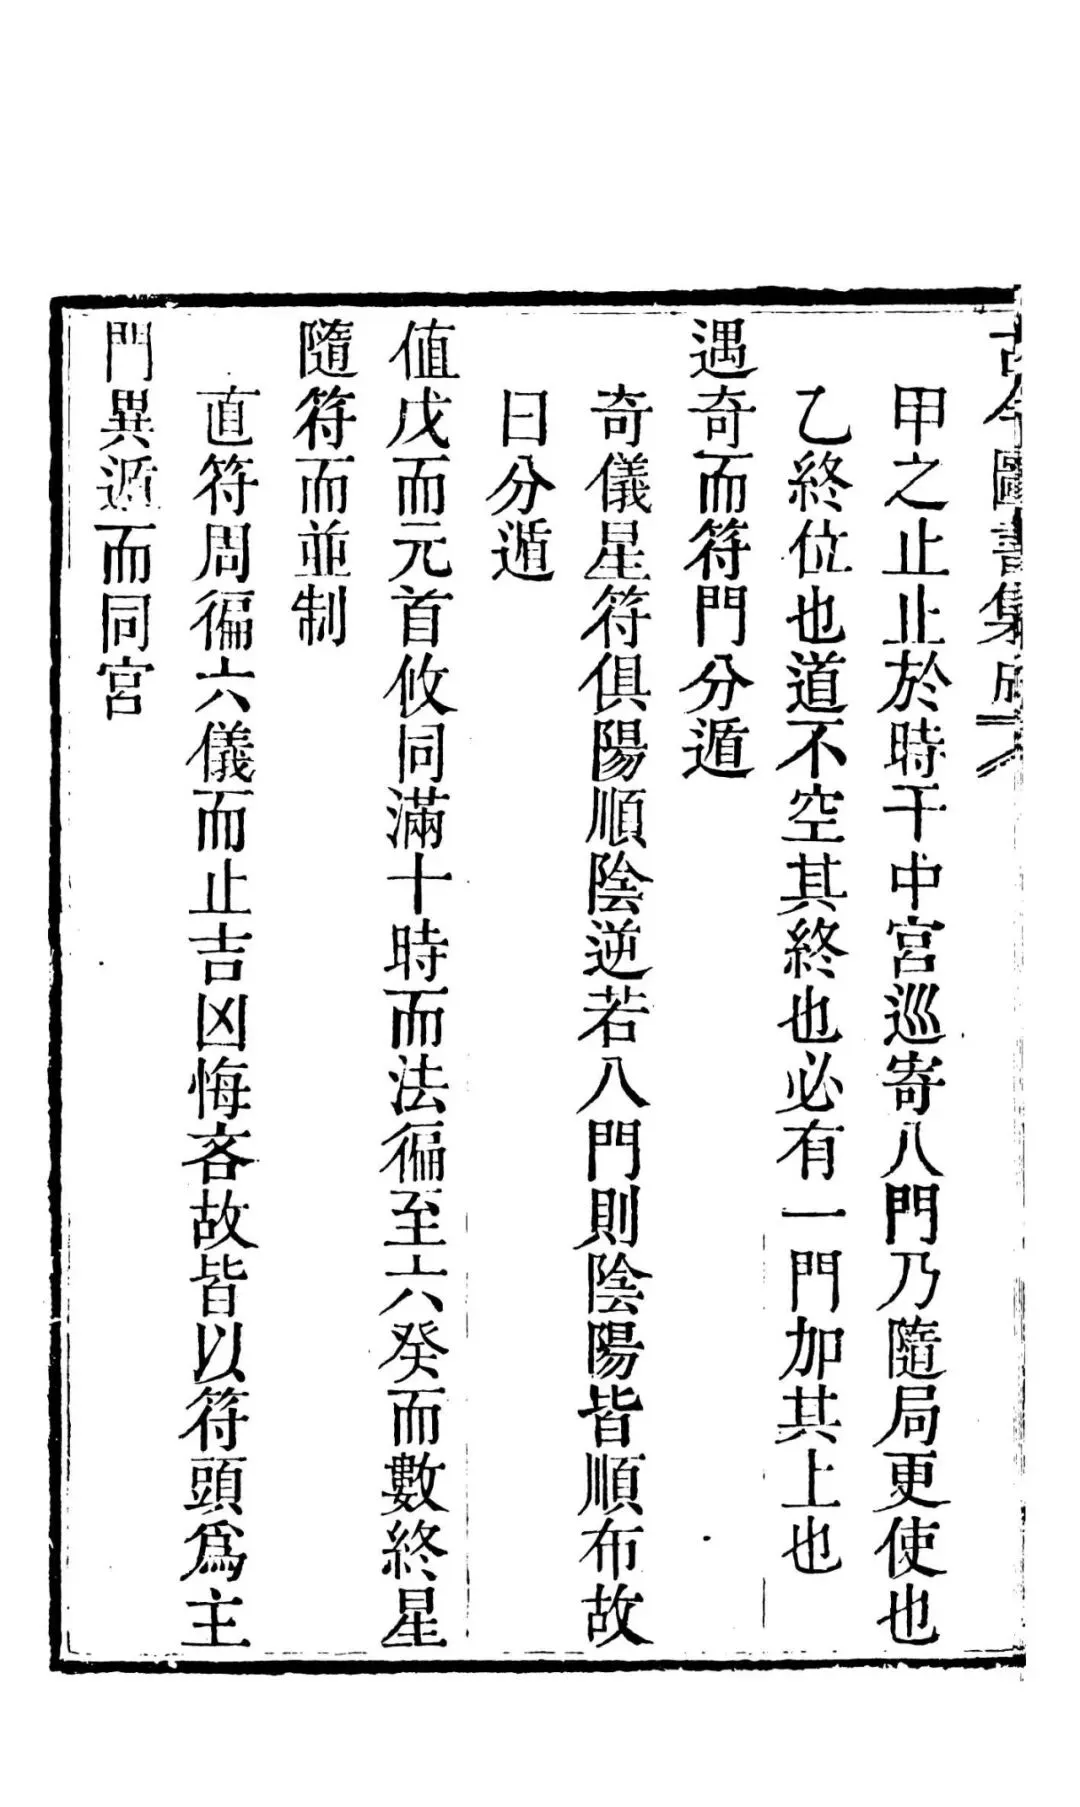 古今圖書集成
甲之止止於時干中宮巡寄八門乃隨局更使也
乙終位也道不空其終也必有一門加其上也
遇奇而符門分遁
奇儀星符俱陽順陰逆若八門則陰陽皆順布故
曰分遁
值戊而元首攸同滿十時而法徧至六癸而數終星
隨符而並制
直符周徧六儀而止吉凶悔吝故皆以符頭爲主
門異遁而同宮